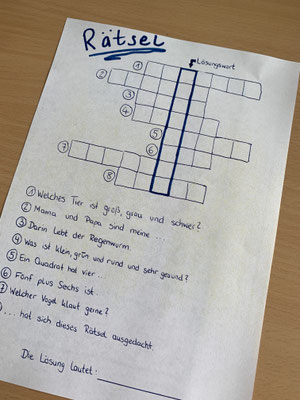 Rätsel
Lösungswort
① 
②
③
④
⑤
⑥
⑦
⑧
① Welches Tier ist groß, grau und schwer?
② Mama und Papa sind meine ...
③ Darin lebt der Regenwurm.
④ Was ist klein, grün und rund und sehr gesund?
⑤ Ein Quadrat hat vier ...
⑥ Fünf plus Sechs ist
⑦ Welcher Vogel klaut gerne?
... hat sich dieses Rätsel ausgedacht.
Die Lösung lautet: